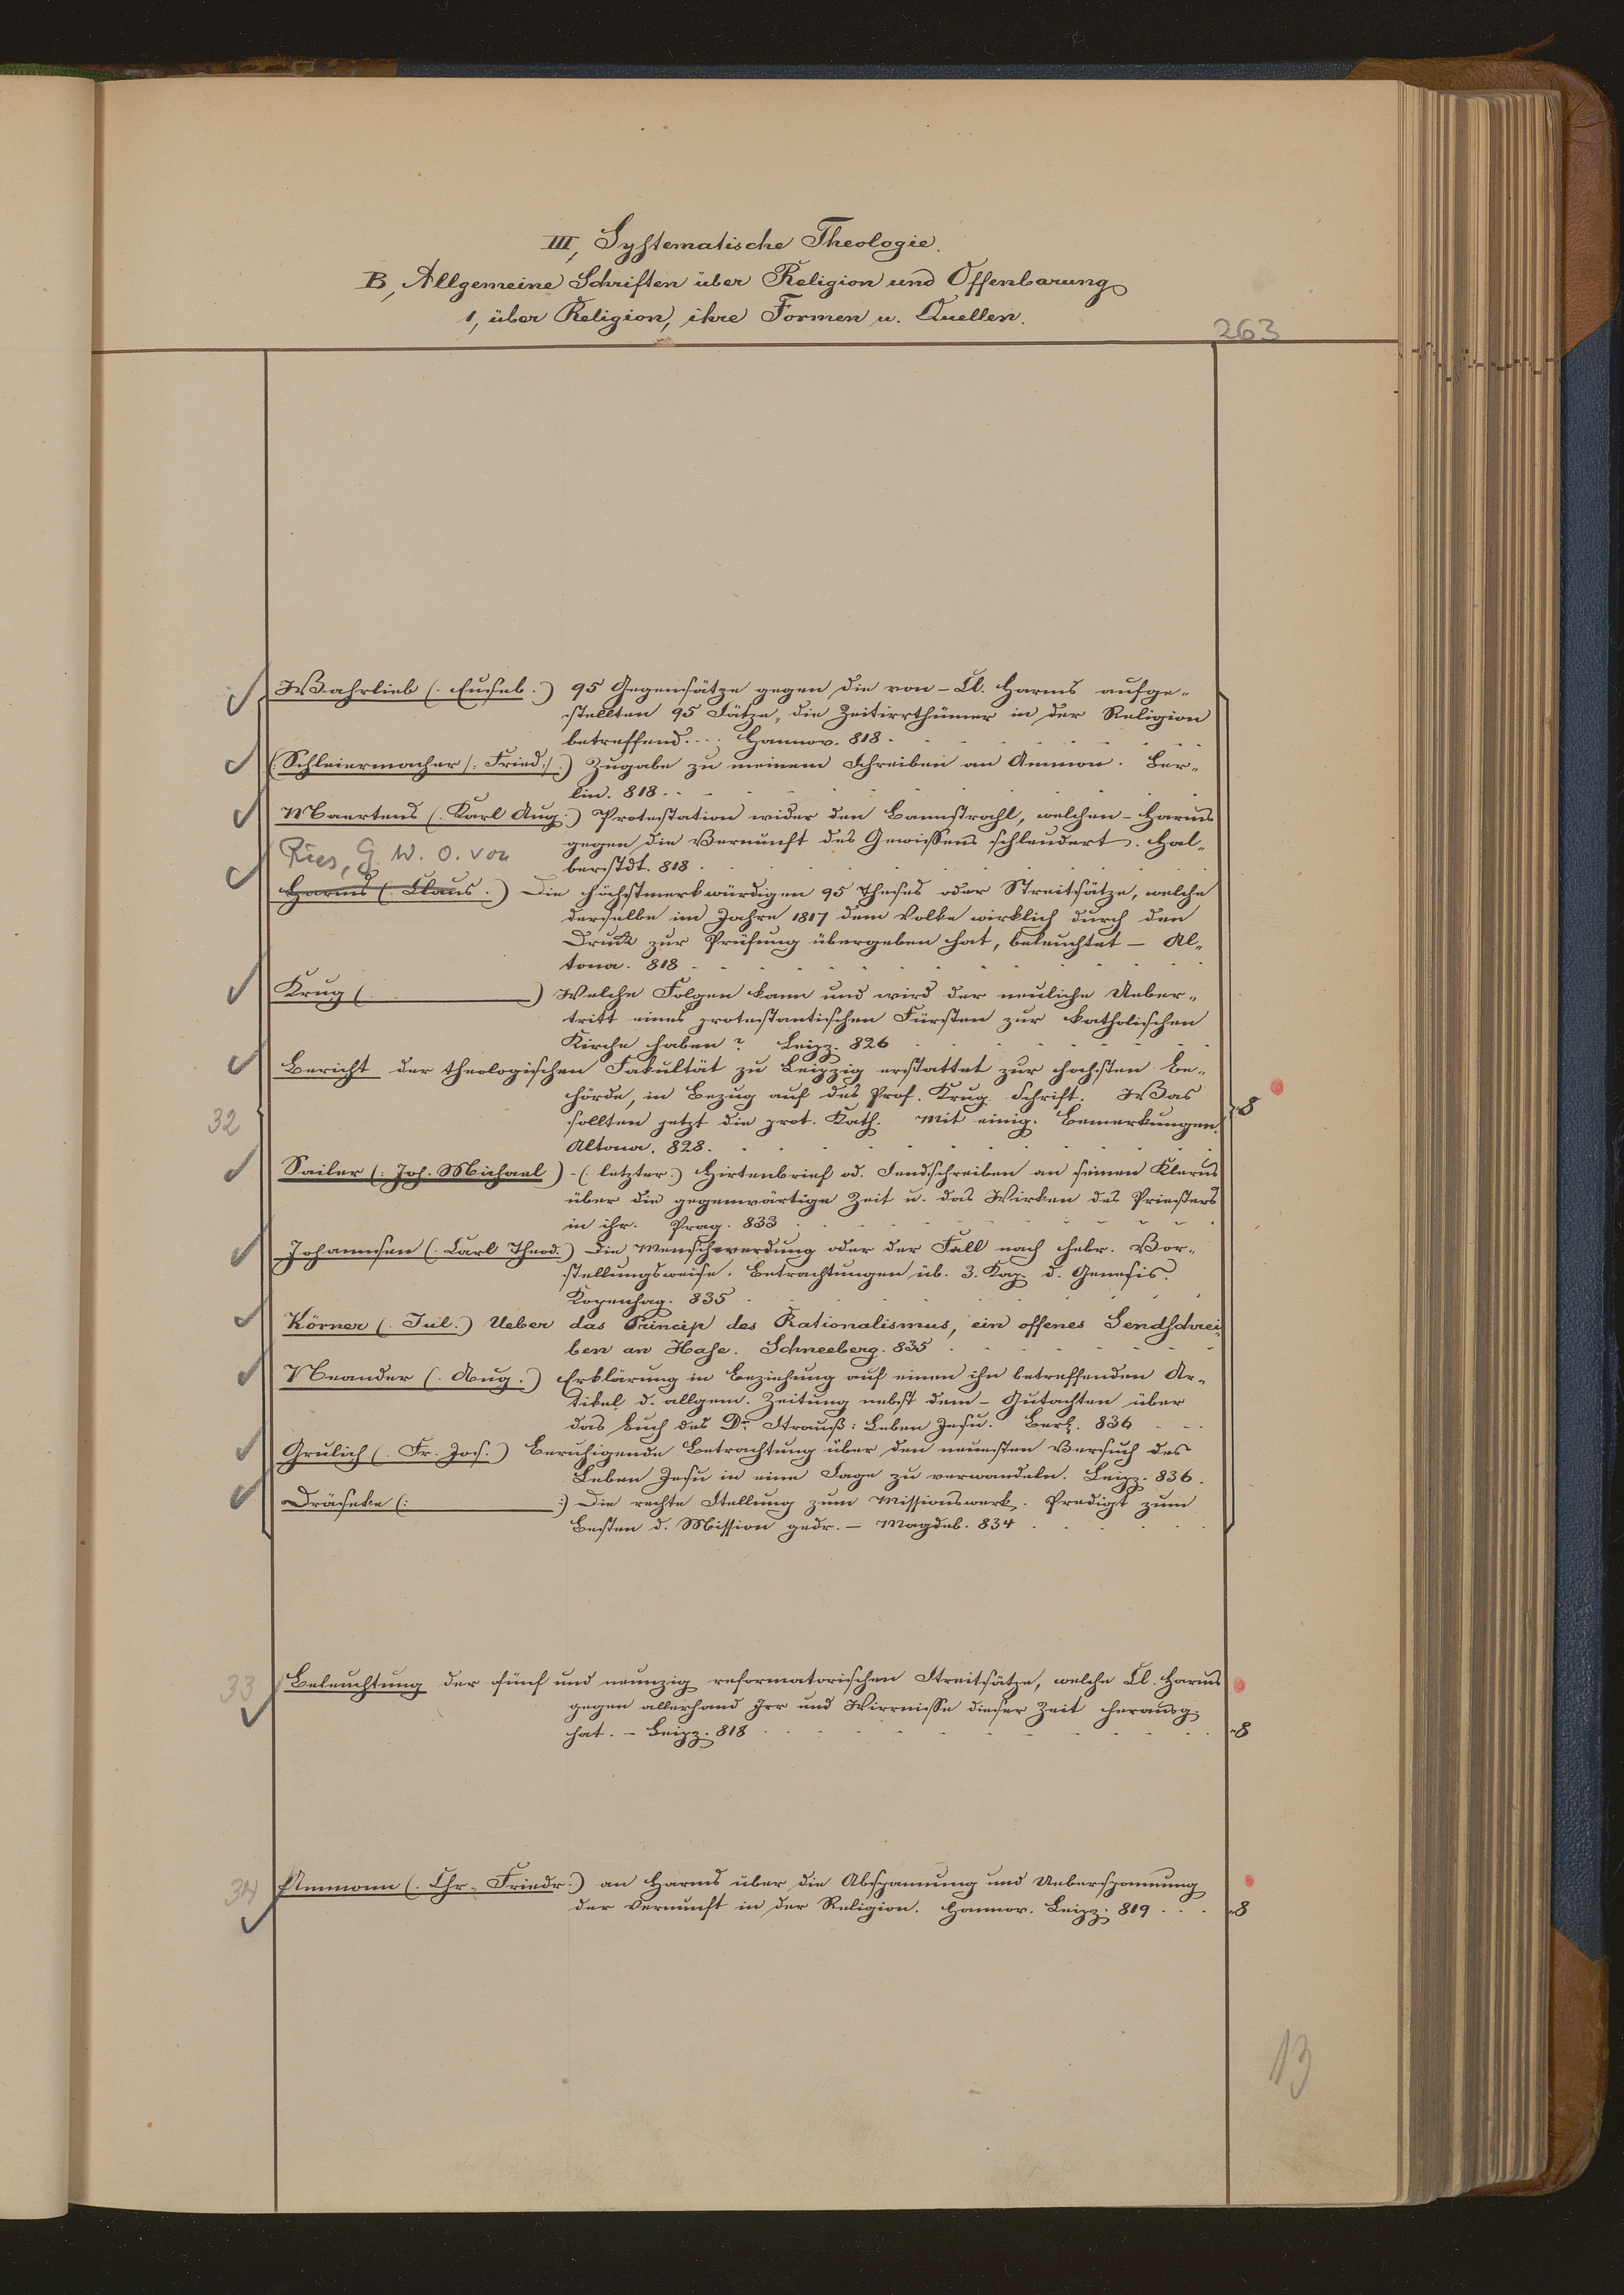 III, Systematische Theologie.
B, Allgemeine Schriften über Religion und Offenbarung
1, über Religion, ihre Formen u. Quellen.
263
Wahrlieb (: Euseb. :) 95 Gegensätze gegen die von - Cl. Harms aufge-
stellten 95 Sätze, die Zeitirrthümer in der Religion
betreffend.... Hannov. 818.
(Schleiermacher /: Fried :/ :) Zugabe zu meinem Schreiben an Ammon. Ber-
lin. 818.
Maertens (: Karl Aug :) Protestation wider den Bannstrahl, welchen - Harms
gegen die Vernunft des Gewissens schleudert. Hal-
berstdt. 818.
Ries, G. W. O. von
Harms (: Claus. :) Die höchstmerkwürdigen 95 Theses oder Streitsätze, welche
derselbe im Jahre 1817 dem Volke wirklich durch den
Druck zur Prüfung übergeben hat, beleuchtet - Al-
tona. 818
Krug (: :) Welche Folgen kann und wird der neuliche Ueber-
tritt eines protestantischen Fürsten zur katholischen
Kirche haben? Leipz. 826
Bericht der theologischen Fakultät zu Leipzig erstattet zur höchsten Be-
hörde, in Bezug auf des Prof. Krug Schrift. Was
32
sollten jetzt die prot. Kath. Mit einig. Bemerkungen.
8
Altona. 828.
Sailer (: Joh. Michael :) - (letzter :) Hirtenbrief od. Sendschreiben an seinen Klerus
über die gegenwärtige Zeit u. das Wirken des Priesters
in ihr. Prag. 833
Johannsen (: Carl Theod. :) Die Menschwerdung oder der Fall nach hebr. Vor-
stellungsweise. Betrachtungen üb. 3. Kap. d. Genesis.
Kopenhag. 835
Körner (: Jul. :) Ueber das Princip des Rationalismus, ein offenes Sendschrei-
ben an Hase. Schneeberg. 835
Neander (: Aug. :) Erklärung in Beziehung auf einen ihn betreffenden Ar-
tikel d. allgem. Zeitung nebst dem - Gutachten über
das Buch des Dr Strauß: Leben Jesu. Berl. 836
Grulich (: Fr. Jos. :) Beruhigende Betrachtung über den neuesten Versuch des
Leben Jesu in eine Sage zu verwandeln. Leipz. 836.
Dräseke (: :) Die rechte Stellung zum Missionswerk. Predigt zum
Besten d. Mission gedr. - Magdeb. 834
33 Beleuchtung der fünf und neunzig reformatorischen Streitsätze, welche Cl. Harms
gegen allerhand Irr und Wirrnisse dieser Zeit herausg.
hat. - Leipz. 818 8
34 Ammonn (: Chr. Friedr. :) an Harms über die Abspannung und Ueberspannung
der Vernunft in der Religion. Hannov. Leipz. 819 8
13